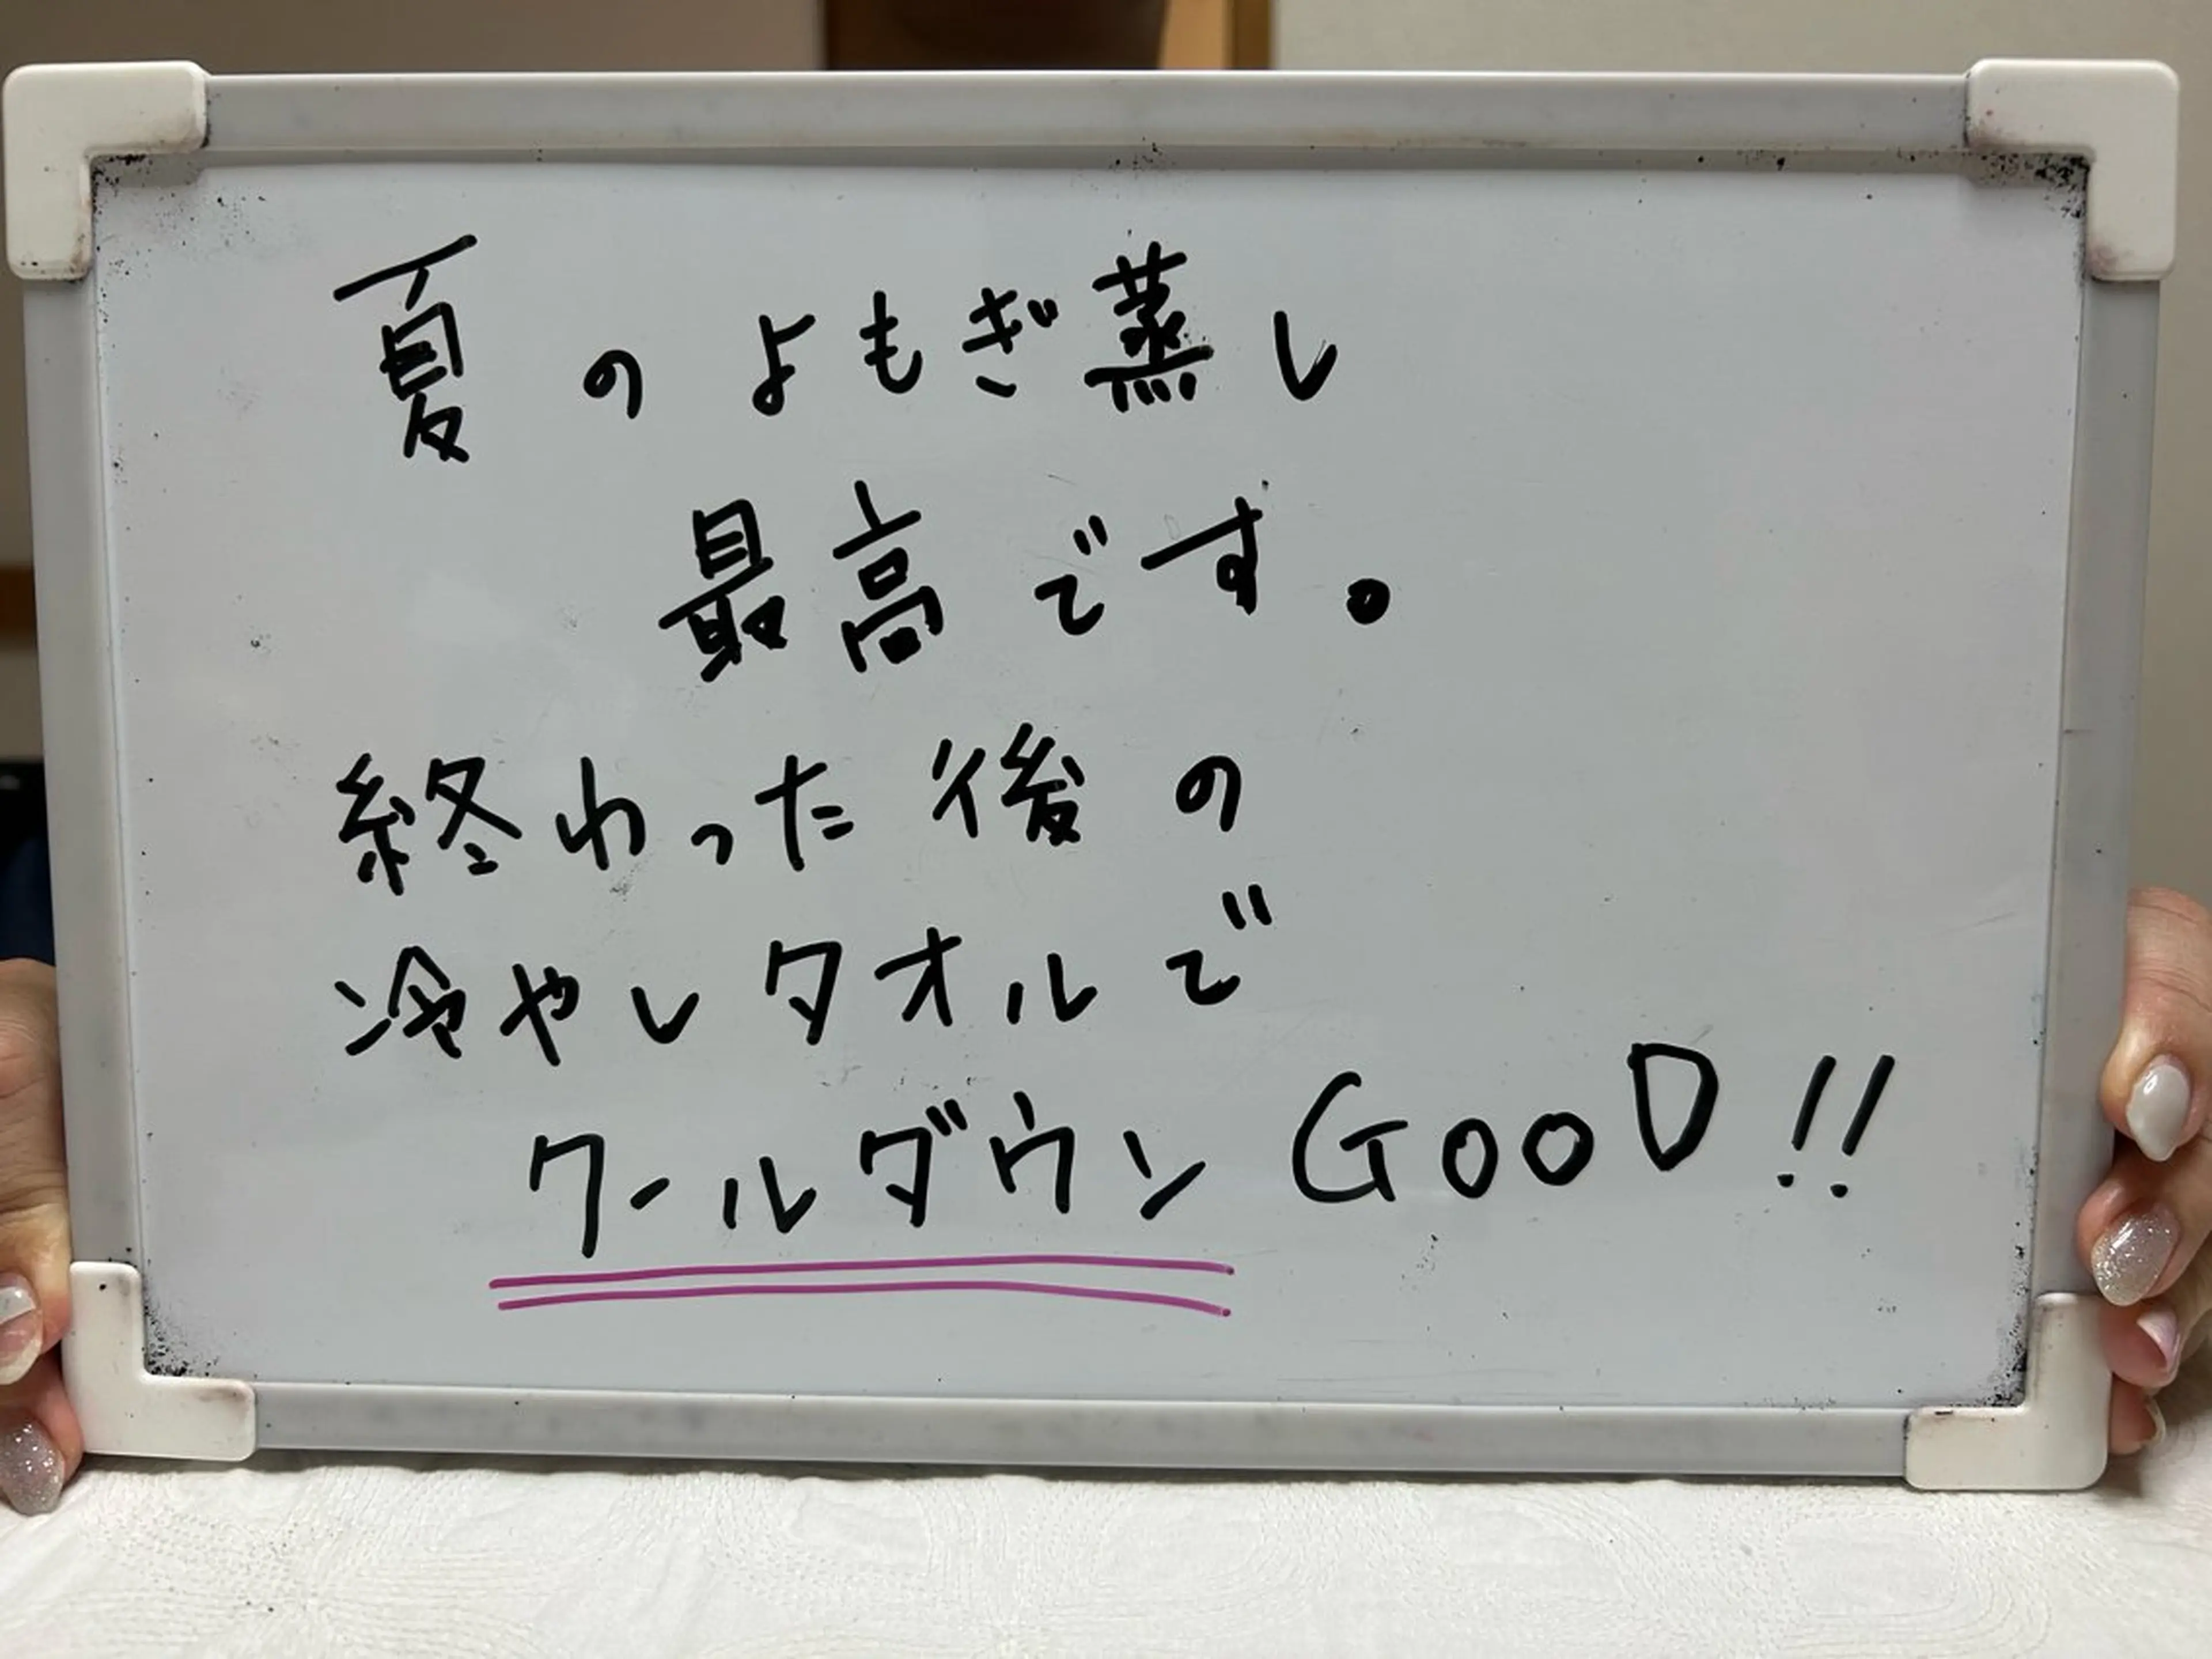 夏のよもぎ蒸し
最高です。
終わった後の
冷やしタオルで
クールダウン GooD!!